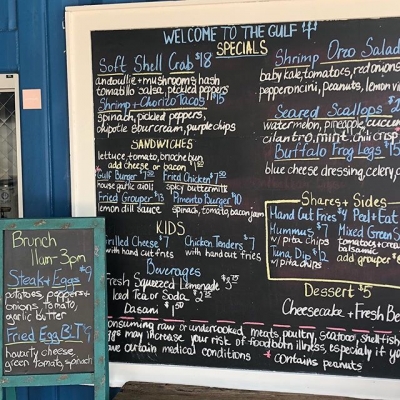 WELCOME TO THE GULF
SPECIALS
Soft Shell Crab $18
andouille + mushrooms hash
tomatillo salsa, pickled peppers
Shrimp + Chorizo Tacos $15
spinach, pickled peppers,
chipotle sour cream, purple chips
SANDWICHES
lettuce, tomato, brioche bun
add cheese or bacon
Gulf Burger $ Fried Chicken $
house garlic aioli spicy buttermilk
Fried Grouper $13 Pimento Burger $10
lemon dill sauce spinach, tomato, bacon jam
KIDS
Grilled Cheese $7 Chicken Tenders $7
with hand cut fries with hand cut fries
Beverages
Fresh Squeezed Lemonade
Iced Tea or Soda
Dasani
Shrimp Oreo Salad
baby kale, tomatoes, red onions
pepperoncini, peanuts, lemon vi
Seared Scallops $2
watermelon, pineapple, cucum
cilantro, mint, chili crisp
Buffalo Frog Legs $15
blue cheese dressing, celery, c
Shares + Sides
Hand Cut Fries $4 Peel + Eat
Hummus $7 Mixed Green S
w/ pita chips tomatoes + crea
balsamic
Tuna Dip $12 add grouper $8
w/ pita chips
Dessert $5
Cheesecake + Fresh Be
consuming raw or undercooked meats, poultry, seafood, shellfish
eggs may increase your risk of foodborn illness, especially if yo
have certain medical conditions * contains peanuts
Brunch
11am-3pm
Steak + Eggs $9
potatoes, peppers +
onions, tomato,
garlic butter
Fried Egg BLT $
havarty cheese,
green tomato, spinach